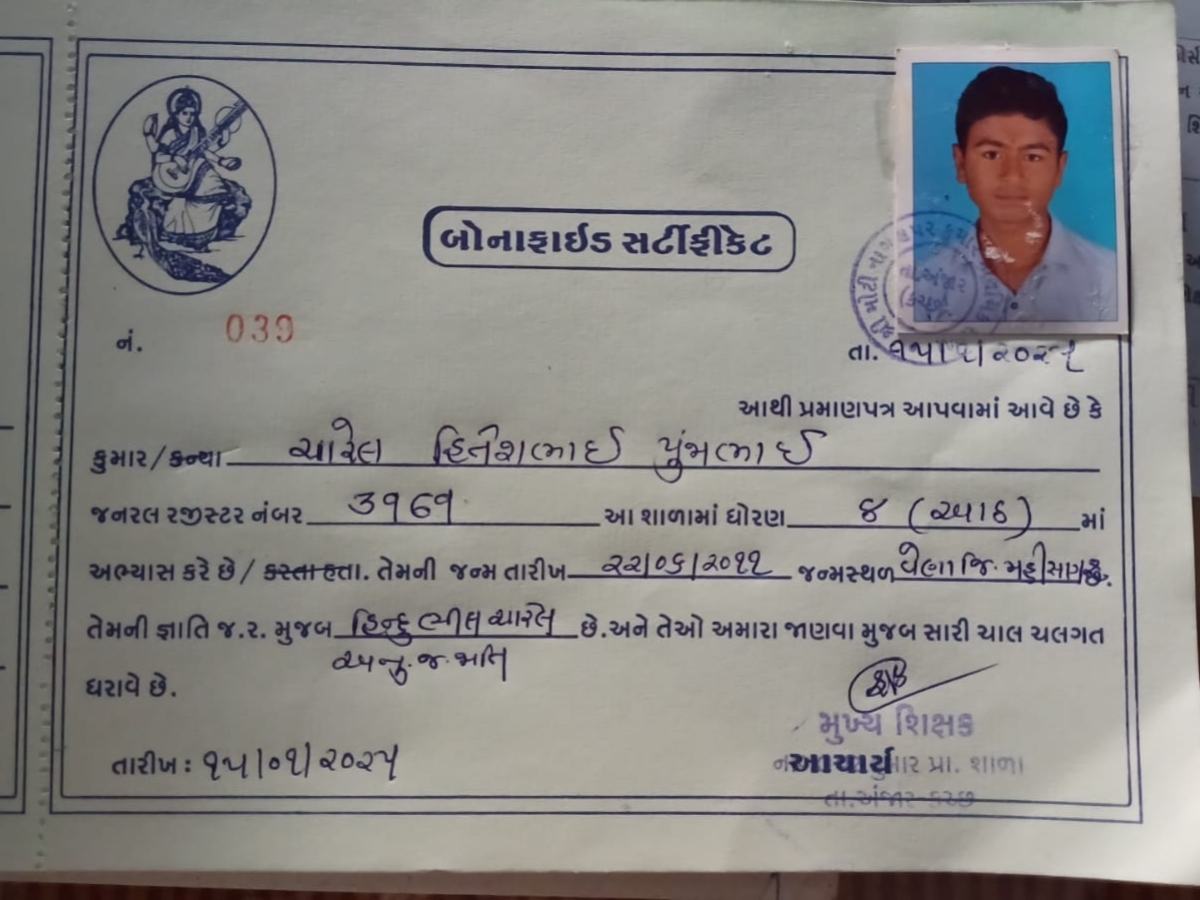 બોનાફાઈડ સર્ટીફીકેટ
શ્રી મોટી નાગલપર કુમાર
તા. અંજાર
(કચ્છ)
નં. 039
તા. ૧૫/૧/૨૦૨૫
આથી પ્રમાણપત્ર આપવામાં આવે છે કે
કુમાર/કન્યા ચારેલ હિતેશભાઈ પુંજાભાઈ
જનરલ રજીસ્ટર નંબર ૩૧૬૧ આ શાળામાં ધોરણ ૮ (આઠ) માં
અભ્યાસ કરે છે / કરતા હતા. તેમની જન્મ તારીખ ૨૨/૦૬/૨૦૧૧ જન્મસ્થળ વેણા જિ. મહીસાગર છે.
તેમની જ્ઞાતિ જ.ર. મુજબ હિન્દુ ભીલ ચારેલ છે. અને તેઓ અમારા જાણવા મુજબ સારી ચાલ ચલગત
અનુ. જ. જાતિ
ધરાવે છે.
મુખ્ય શિક્ષક
તારીખ : ૧૫/૦૧/૨૦૨૫
આચાર્ય પ્રા. શાળા
તા. અંજાર કચ્છ